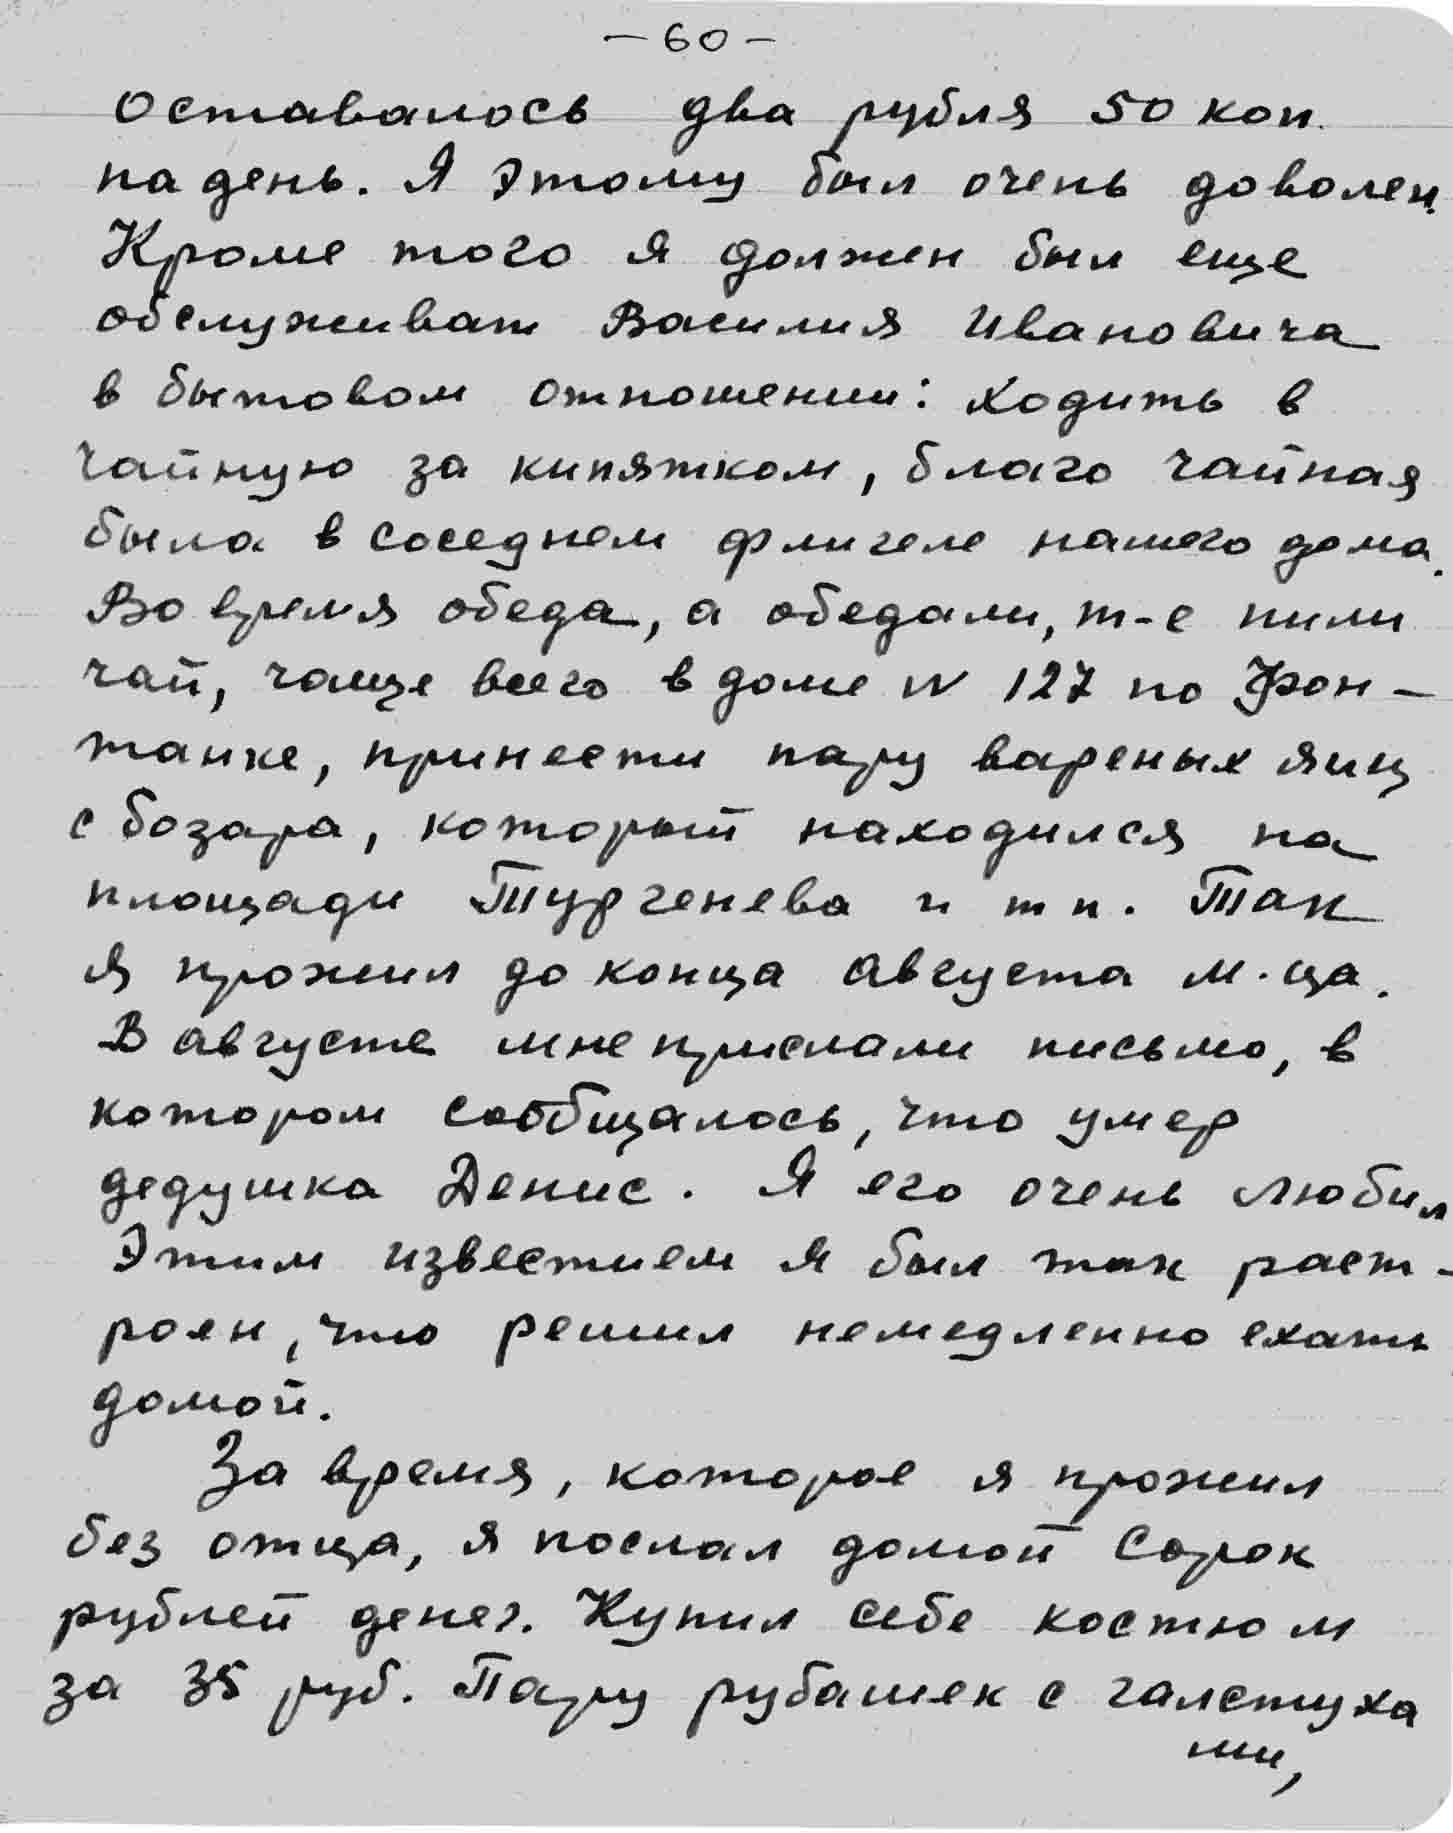 - 60 -
Оставалось два рубля 50 коп.
на день. Я этому был очень доволен.
Кроме того я должен был еще
обслуживат Василия Ивановича
в бытовом отношении: ходить в
чайную за кипятком, благо чайная
была в соседнем флигеле нашего дома.
Во время обеда, а обедали, т-е пили
чай, чаще всего в доме N 127 по Фон-
танке, принести пару вареных яиц
с бозара, который находился на
площади Тургенева и т п. Так
я прожил до конца августа м-ца.
В августе мне прислали письмо, в
котором сообщалось, что умер
дедушка Денис. Я его очень любил
Этим известием я был так раст-
роен, что решил немедленно ехать
домой.
За время, которое я прожил
без отца, я послал домой сорок
рублей денег. Купил себе костюм
за 35 руб. Пару рубашек с галстуха
ми,